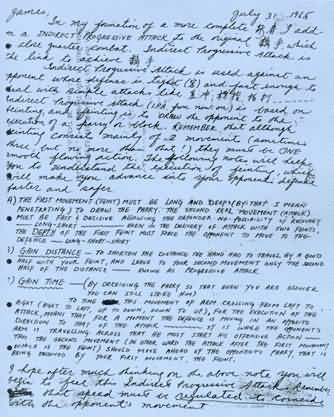 James,
July 31, 1965
In my formation of a more complete I add
on a INDIRECT PROGRESSIVE ATTACK to the original which
close quarter combat. Indirect Progressive Attack is
the link to achieve
Indirect Progressive Attack is used against an
opponent whose defense is tight and fast enough to
deal with simple attacks like
Indirect Progressive Attack (IPA from now on) is based on
feinting, and feinting is to DRAW the opponent to the
execution of a parry or block. REMEMBER that although
feinting consist mainly of 2 movements (sometimes
three, but no more than that) they must be ONE
smooth flowing action. The following notes will help
you to understand the operation of feinting, which
will make your advance into your opponent's defense
faster and safer.
A) THE FIRST MOVEMENT (FEINT) MUST BE LONG AND DEEP (BY THAT I MEAN
PENETRATING) TO DRAW THE PARRY. THE SECOND REAL MOVEMENT (ATTACK)
MUST BE FAST & DECISIVE ALLOWING THE DEFENDER NO POSSIBILITY OF RECOVERY
LONG-SHORT EVEN IN THE DELIVERY OF ATTACK WITH TWO FEINTS,
THE DEPTH OF THE FIRST FEINT MUST FORCE THE OPPONENT TO MOVE TO THE
DEFENSE LONG-SHORT-SHORT
1) GAIN DISTANCE - TO SHORTEN THE DISTANCE THE HAND HAS TO TRAVEL BY A GOOD
HALF WITH YOUR FEINT, AND LEAVE TO YOUR SECOND MOVEMENT ONLY THE SECOND
HALF OF THE DISTANCE AS PROGRESSIVE ATTACK.
2) GAIN TIME - (BY DECEIVING THE PARRY SO THAT EVEN YOU ARE SLOWER
CAN STILL SCORE HIM)
TO TIME THE MOVEMENT OF ARM CROSSING FROM LEFT TO
RIGHT (RIGHT TO LEFT, UP TO DOWN, DOWN TO UP), FOR THE EXECUTION OF THE
ATTACK, MEANS THAT FOR A MOMENT THE DEFENSE IS MOVING IN AN OPPOSITE
DIRECTION TO THAT OF THE ATTACK IT IS WHERE THE OPPONENT'S
ARM IS TRAVELLING ACROSS THAT WE MUST START AN OFFENSIVE ACTION
THUS THE SECOND MOVEMENT (IN OTHER WORD THE ATTACK AFTER THE FIRST MOVEMENT,
WHICH IS THE FEINT) SHOULD MOVE AHEAD OF THE OPPONENT'S PARRY THAT IS
BEING INDUCED BY YOUR FIRST MOVEMENT THE FEINT.
I hope after much thinking on the above note you will
begin to feel this Indirect Progressive Attack. Remember
that speed must be regulated to coincide
with the opponent's movement